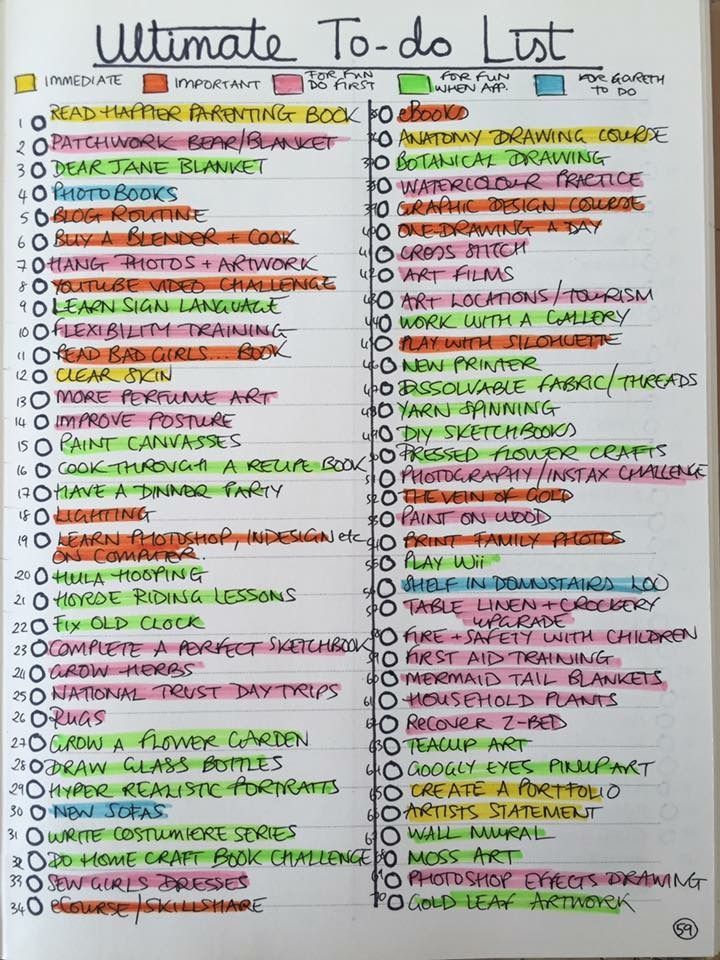 Ultimate To-do List
IMMEDIATE IMPORTANT FOR FUN DO FIRST FOR FUN WHEN APP. FOR GARETH TO DO
1 READ HAPPIER PARENTING BOOK
2 PATCHWORK BEAR/BLANKET
3 DEAR JANE BLANKET
4 PHOTOBOOKS
5 BLOG ROUTINE
6 BUY A BLENDER + COOK
7 HANG PHOTOS + ARTWORK
8 YOUTUBE VIDEO CHALLENGE
9 LEARN SIGN LANGUAGE
10 FLEXIBILITY TRAINING
11 READ BAD GIRLS... BOOK
12 CLEAR SKIN
13 MORE PERFUME ART
14 IMPROVE POSTURE
15 PAINT CANVASSES
16 COOK THROUGH A RECIPE BOOK
17 HAVE A DINNER PARTY
18 LIGHTING
19 LEARN PHOTOSHOP, INDESIGN etc
ON COMPUTER.
20 HULA HOOPING
21 HORSE RIDING LESSONS
22 FIX OLD CLOCK
23 COMPLETE A PERFECT SKETCHBOOK
24 GROW HERBS
25 NATIONAL TRUST DAY TRIPS
26 RUGS
27 GROW A FLOWER GARDEN
28 DRAW GLASS BOTTLES
29 HYPER REALISTIC PORTRAITS
30 NEW SOFAS
31 WRITE COSTUMIERE SERIES
32 DO HOME CRAFT BOOK CHALLENGE
33 SEW GIRLS DRESSES
34 eCOURSE/SKILLSHARE
35 eBOOKS
36 ANATOMY DRAWING COURSE
37 BOTANICAL DRAWING
38 WATERCOLOUR PRACTICE
39 GRAPHIC DESIGN COURSE
40 ONE DRAWING A DAY
41 CROSS STITCH
42 ART FILMS
43 ART LOCATIONS/TOURISM
44 WORK WITH A GALLERY
45 PLAY WITH SILOHUETTE
46 NEW PRINTER
47 DISSOLVABLE FABRIC/THREADS
48 YARN SPINNING
49 DIY SKETCHBOOKS
50 PRESSED FLOWER CRAFTS
51 PHOTOGRAPHY/INSTAX CHALLENGE
52 THE VEIN OF GOLD
53 PAINT ON WOOD
54 PRINT FAMILY PHOTOS
55 PLAY Wii
56 SHELF IN DOWNSTAIRS LOO
57 TABLE LINEN + CROCKERY
UPGRADE
58 FIRE + SAFETY WITH CHILDREN
59 FIRST AID TRAINING
60 MERMAID TAIL BLANKETS
61 HOUSEHOLD PLANTS
62 RECOVER Z-BED
63 TEACUP ART
64 GOOGLY EYES PINUP ART
65 CREATE A PORTFOLIO
66 ARTISTS STATEMENT
67 WALL MURAL
68 MOSS ART
69 PHOTOSHOP EFFECTS DRAWING
70 GOLD LEAF ARTWORK
59